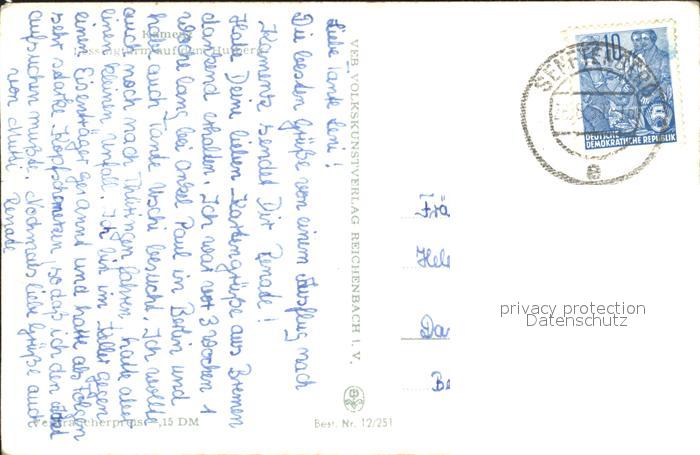 Kamenz
Lessingturm auf dem Hutberg
Liebe Tante Leni!
Die besten Grüße von einem Ausflug nach
Kamenz sendet Dir Renate!
Habe Deine lieben Kartengrüße aus Bremen
dankend erhalten. Ich war vor 3 Wochen 1
Woche lang bei Onkel Paul in Berlin und
habe auch Tante Uschi besucht. Ich wollte
auch noch nach Thüringen fahren, hatte aber
einen kleinen Unfall. Ich bin im Keller gegen
einen Eisenträger gerannt und hatte als Folgen
sehr starke Kopfschmerzen, so daß ich den Arzt
aufsuchen mußte. Nochmals liebe Grüße auch
von Mutti Renate
VEB VOLKSKUNSTVERLAG REICHENBACH i. V.
Verbraucherpreis ,15 DM
Best. Nr. 12/251
10
5
DEUTSCHE
DEMOKRATISCHE REPUBLIK
SENFTENBERG
e
Frä
Hel
Da
privacy protection
Datenschutz